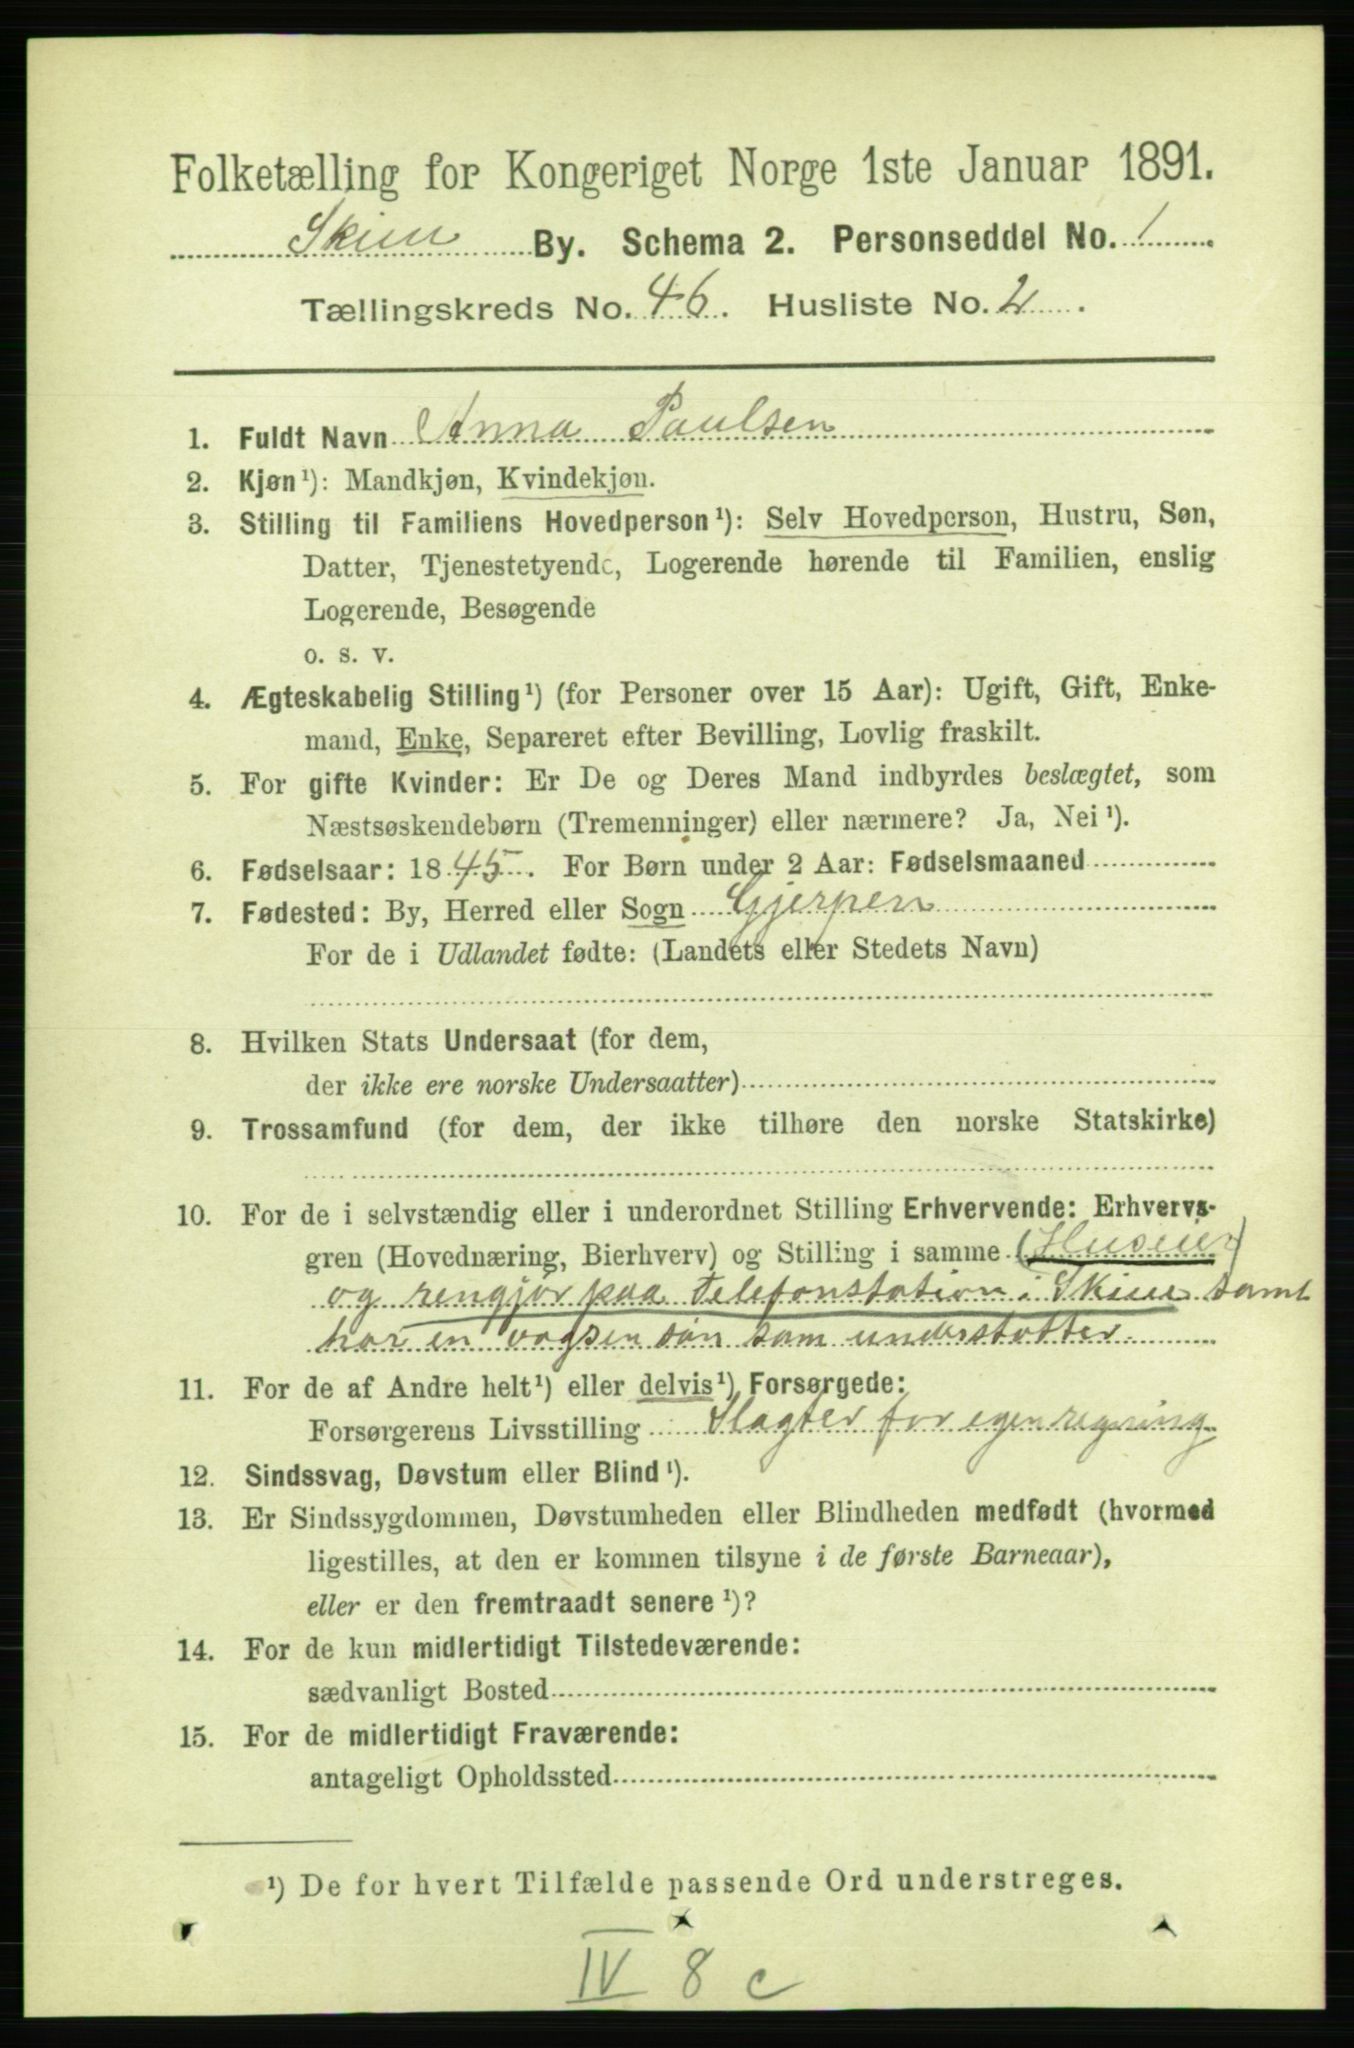 Folketælling for Kongeriget Norge 1ste Januar 1891.
Skien By. Schema 2. Personseddel No. 1
Tællingskreds No. 46. Husliste No. 2.
1. Fuldt Navn Anna Paulsen
2. Kjøn¹): Mandkjøn, Kvindekjøn.
3. Stilling til Familiens Hovedperson¹): Selv Hovedperson, Hustru, Søn,
Datter, Tjenestetyende, Logerende hørende til Familien, enslig
Logerende, Besøgende
o. s. v.
4. Ægteskabelig Stilling¹) (for Personer over 15 Aar): Ugift, Gift, Enke-
mand, Enke, Separeret efter Bevilling, Lovlig fraskilt.
5. For gifte Kvinder: Er De og Deres Mand indbyrdes beslægtet, som
Næstsøskendebørn (Tremenninger) eller nærmere? Ja, Nei¹).
6. Fødselsaar: 1845. For Børn under 2 Aar: Fødselsmaaned
7. Fødested: By, Herred eller Sogn Gjerpen
For de i Udlandet fødte: (Landets eller Stedets Navn)
8. Hvilken Stats Undersaat (for dem,
der ikke ere norske Undersaatter)
9. Trossamfund (for dem, der ikke tilhøre den norske Statskirke)
10. For de i selvstændig eller i underordnet Stilling Erhvervende: Erhvervs-
gren (Hovednæring, Bierhverv) og Stilling i samme (Huseier)
og rengjør paa telefonstation i Skien samt
har en vogsen søn som understøtter
11. For de af Andre helt¹) eller delvis¹) Forsørgede:
Forsørgerens Livsstilling Slagter for egen regning
12. Sindssvag, Døvstum eller Blind¹).
13. Er Sindssygdommen, Døvstumheden eller Blindheden medfødt (hvormed
ligestilles, at den er kommen tilsyne i de første Barneaar),
eller er den fremtraadt senere¹)?
14. For de kun midlertidigt Tilstedeværende:
sædvanligt Bosted
15. For de midlertidigt Fraværende:
antageligt Opholdssted
¹) De for hvert Tilfælde passende Ord understreges.
IV 8 c